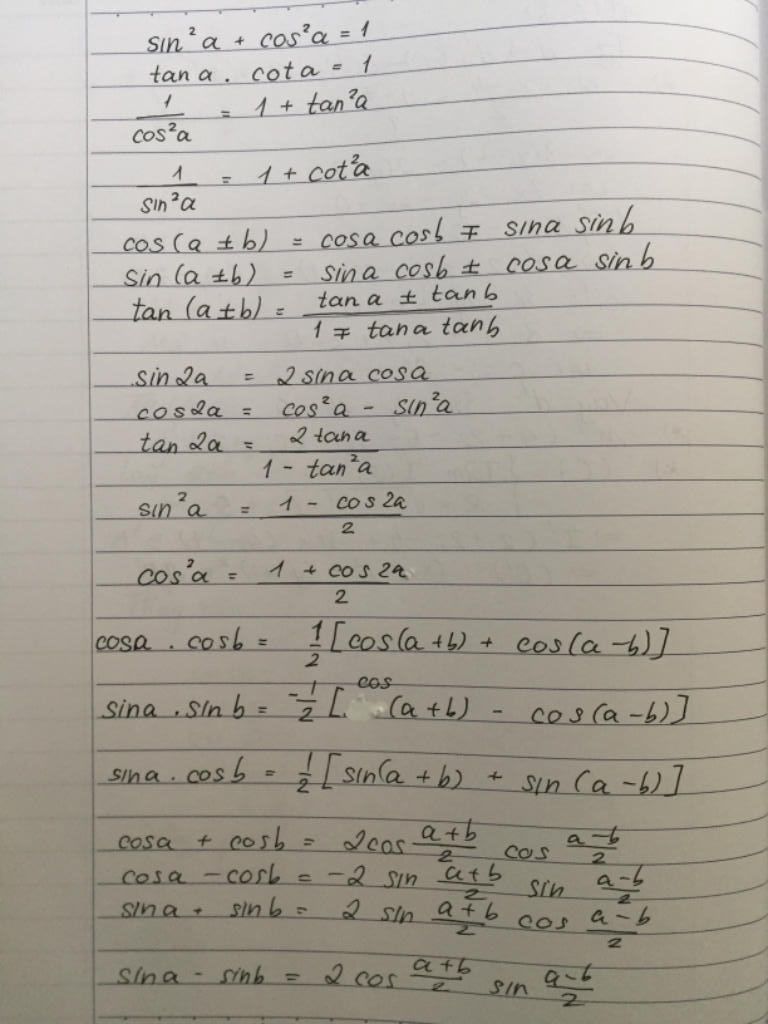 sin²a + cos²a = 1
tan a . cot a = 1
1/cos²a = 1 + tan²a
1/sin²a = 1 + cot²a
cos(a ± b) = cosa cosb ∓ sina sinb
sin(a ± b) = sina cosb ± cosa sinb
tan(a ± b) = (tan a ± tan b)/(1 ∓ tana tanb)
sin2a = 2 sina cosa
cos2a = cos²a - sin²a
tan 2a = 2 tana/(1 - tan²a)
sin²a = (1 - cos2a)/2
cos²a = (1 + cos2a)/2
cosa . cosb = 1/2 [cos(a+b) + cos(a-b)]
sina . sinb = -1/2 [cos(a+b) - cos(a-b)]
sina . cosb = 1/2 [sin(a+b) + sin(a-b)]
cosa + cosb = 2cos (a+b)/2 cos (a-b)/2
cosa - cosb = -2 sin (a+b)/2 sin (a-b)/2
sina + sinb = 2 sin (a+b)/2 cos (a-b)/2
sina - sinb = 2 cos (a+b)/2 sin (a-b)/2